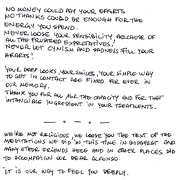 NO MONEY COULD PAY YOUR EFFORTS
NO THANKS COULD BE ENOUGH FOR THE
ENERGY YOU SPEND.
NEVER LOOSE YOUR SENSIBILITY BECAUSE OF
ALL THE FRUSTED EXPECTATIVES!
NEVER LET CYNISM AND SADNESS FILL YOUR
HEARTS!
YOUR DEEP LOOKS, YOUR SMILES, YOUR SIMPLE WAY
TO GET IN CONTACT ARE FIXED FOR EVER IN
OUR MEMORY.
THANK YOU FOR ALL AND THE CAPACITY AND FOR THAT
INTANGIBLE INGREDIENT IN YOUR TREATMENTS.
WE'RE NOT RELIGIOUS. WE LOOSE YOU THE TEXT OF THE
MEDITATIONS WE DID IN THIS TIME IN BUDAPEST AND
MANY OTHER FRIENDS HERE AND IN OTHER PLACES DID
TO ACCOMPANION OUR DEAR ALFONSO.
IT IS OUR WAY TO FEEL YOU DEEPLY.